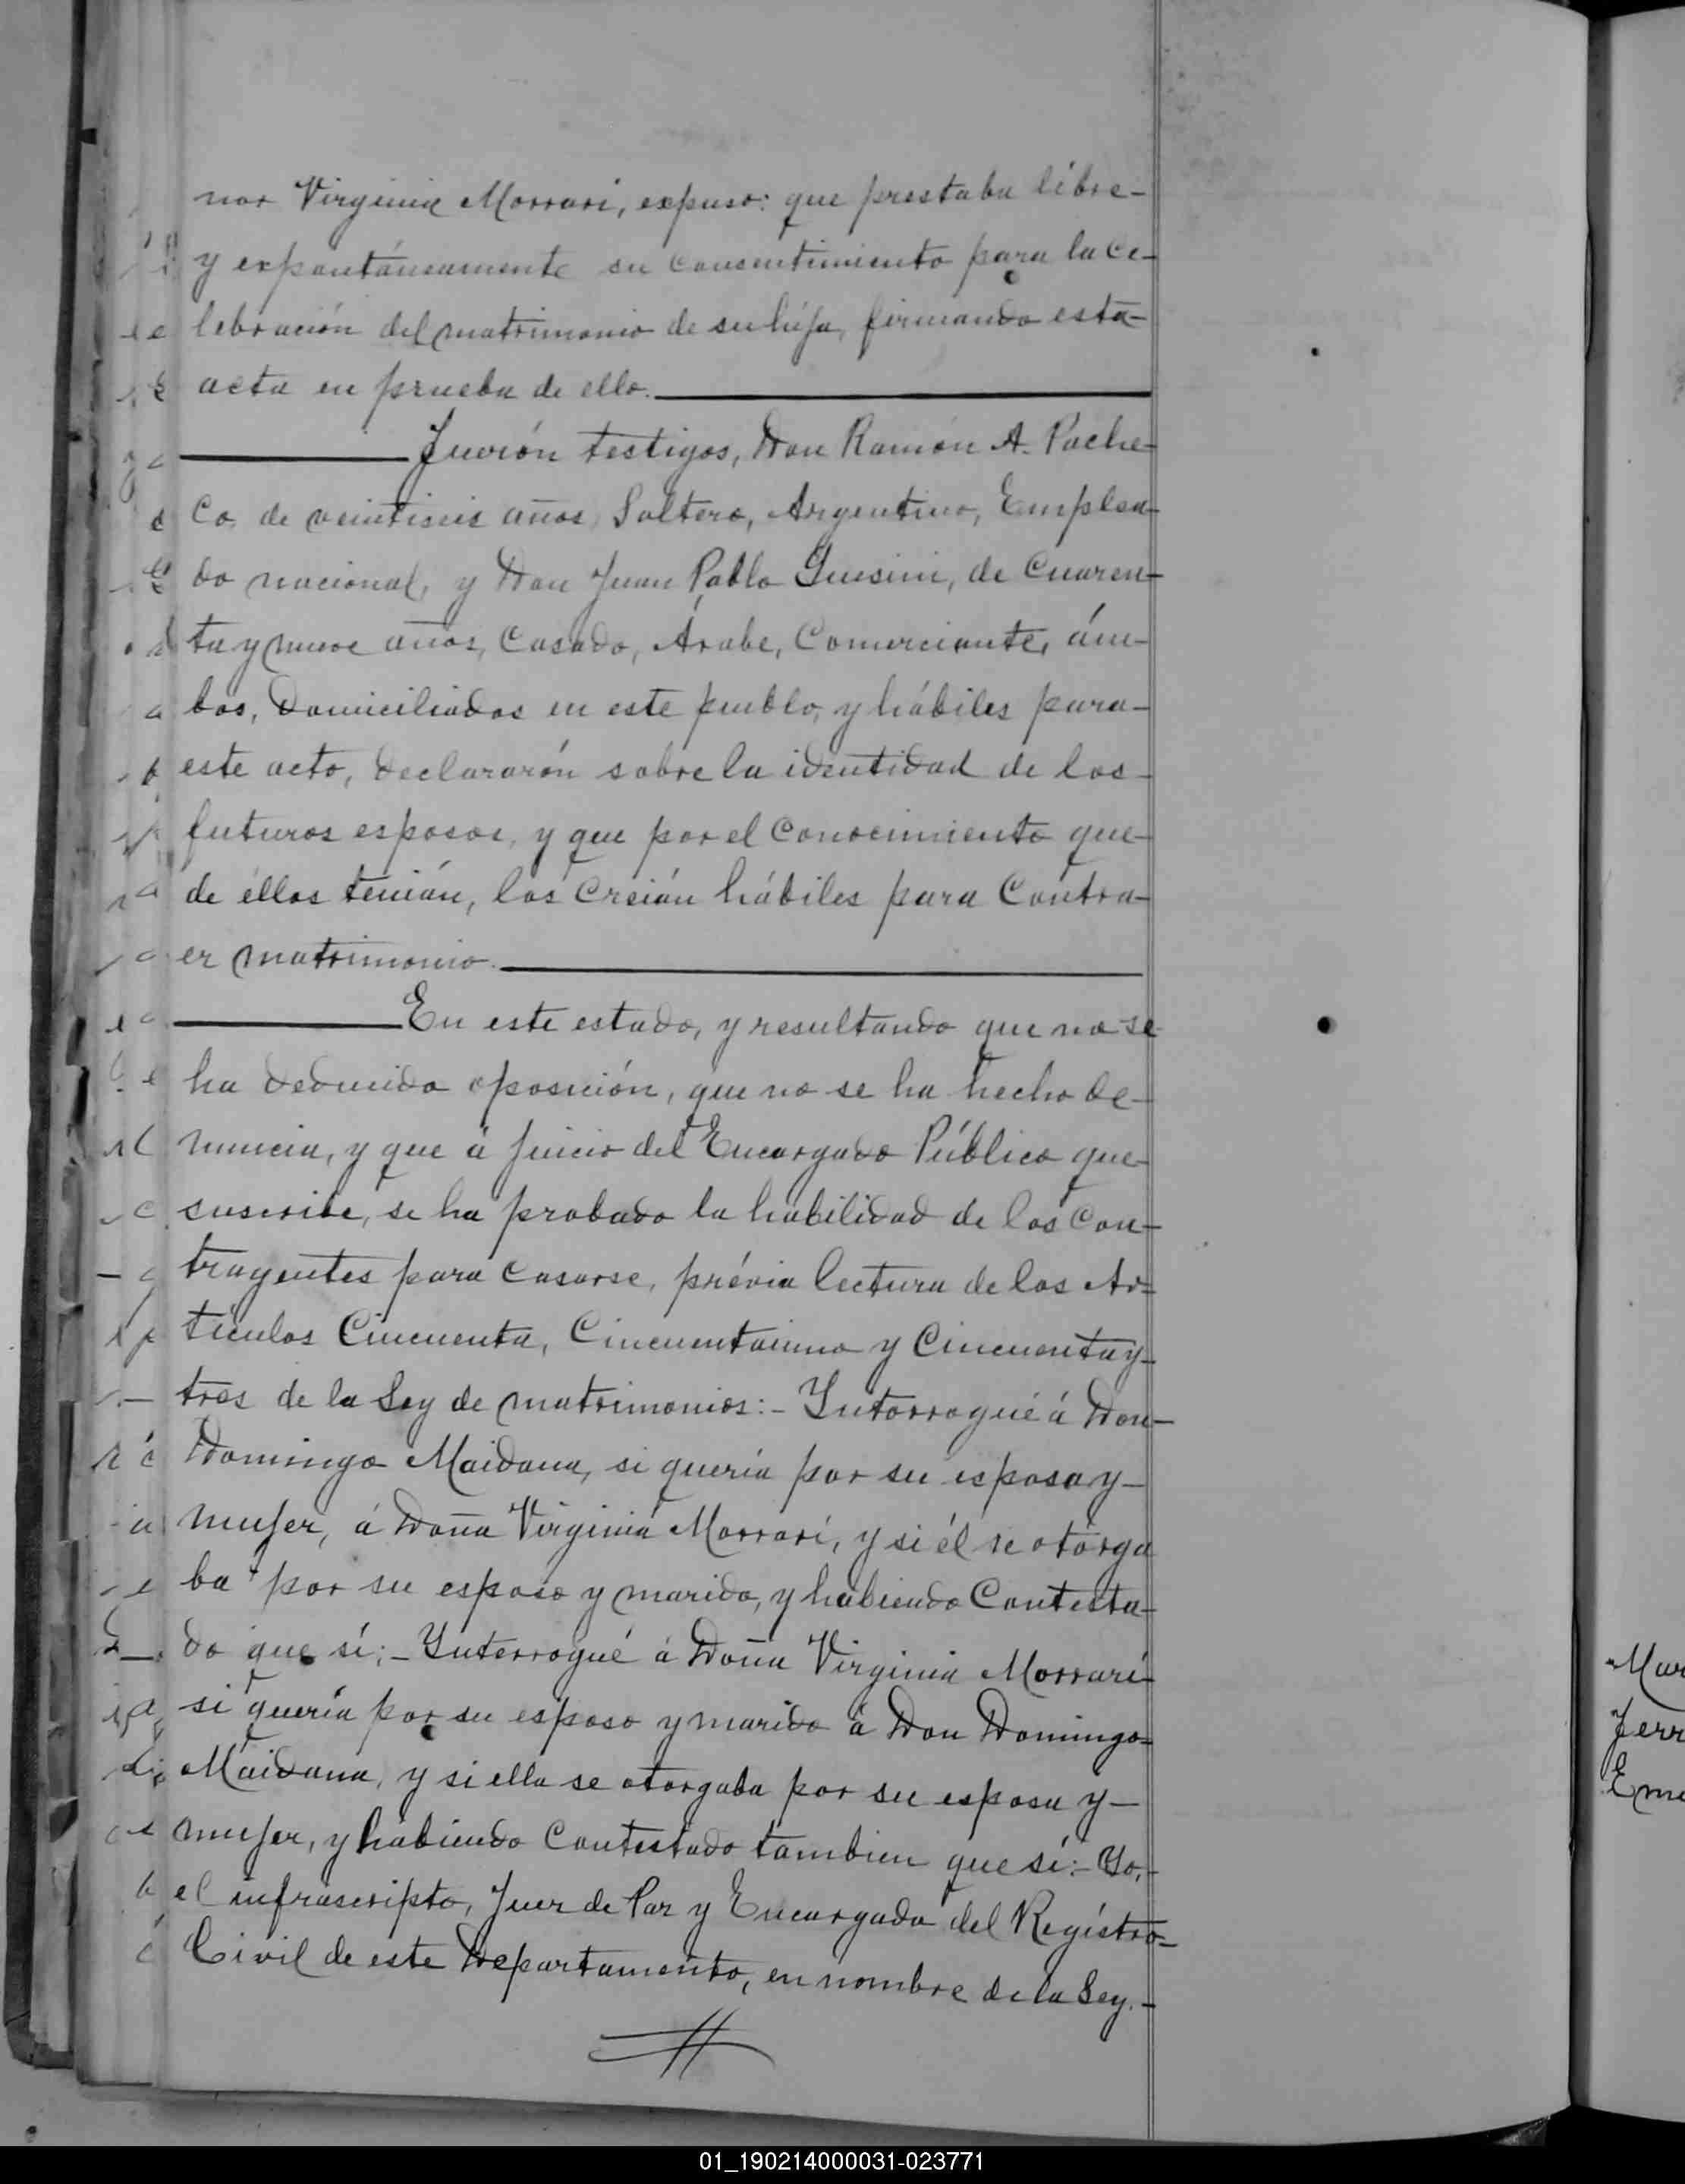 nor Virginia Morrari, expuso: que prestaba libre-
y expontáneamente su consentimiento para la Ce-
lebración del matrimonio de su hija, firmando esta-
acta en prueba de ello.
Fuerón testigos, Don Ramón A. Pache-
Co, de veintiseis años, Soltero, Argentino, Emplea-
do nacional, y Don Juan Pablo de Cuaren-
ta y nueve años, Casado, Árabe, Comerciante, ám-
bos, Domiciliados en este pueblo, y hábiles para-
este acto, declararón sobre la identidad de los-
futuros esposos, y que por el Conocimiento que-
de éllos tenián, los Creián hábiles para Contra-
er matrimonio.
En este estado, y resultando que no se
ha deducido oposición, que no se ha hecho de-
nuncia, y que á juicio del Encargado Público que-
suscribe, se ha probado la habilidad de los Con-
trayentes para Casarse, prévia lectura de los Ar=
tículos Cincuenta, Cincuentaiuno y Cincuenta y-
tres de la Ley de matrimonios:- Interrogué á Don-
Domingo Maidana, si quería por su esposa y-
mujer, á Doña Virginia Morrarí, y si él se otórga
ba por su esposo y marido, y habiendo Contesta-
do que sí;- Interrogué á Doña Virginia Morrarí-
si quería por su esposo y marido á Don Domingo=
Maidana, y si ella se otorgaba por su esposa y-
mujer, y habiendo Contestado tambien que sí:- Yo,-
el infrascripto, Juez de Paz y Encargado del Regístro=
Civil de este Departamento, en nombre de la Ley.-
Mar
Ferr
01_190214000031-023771